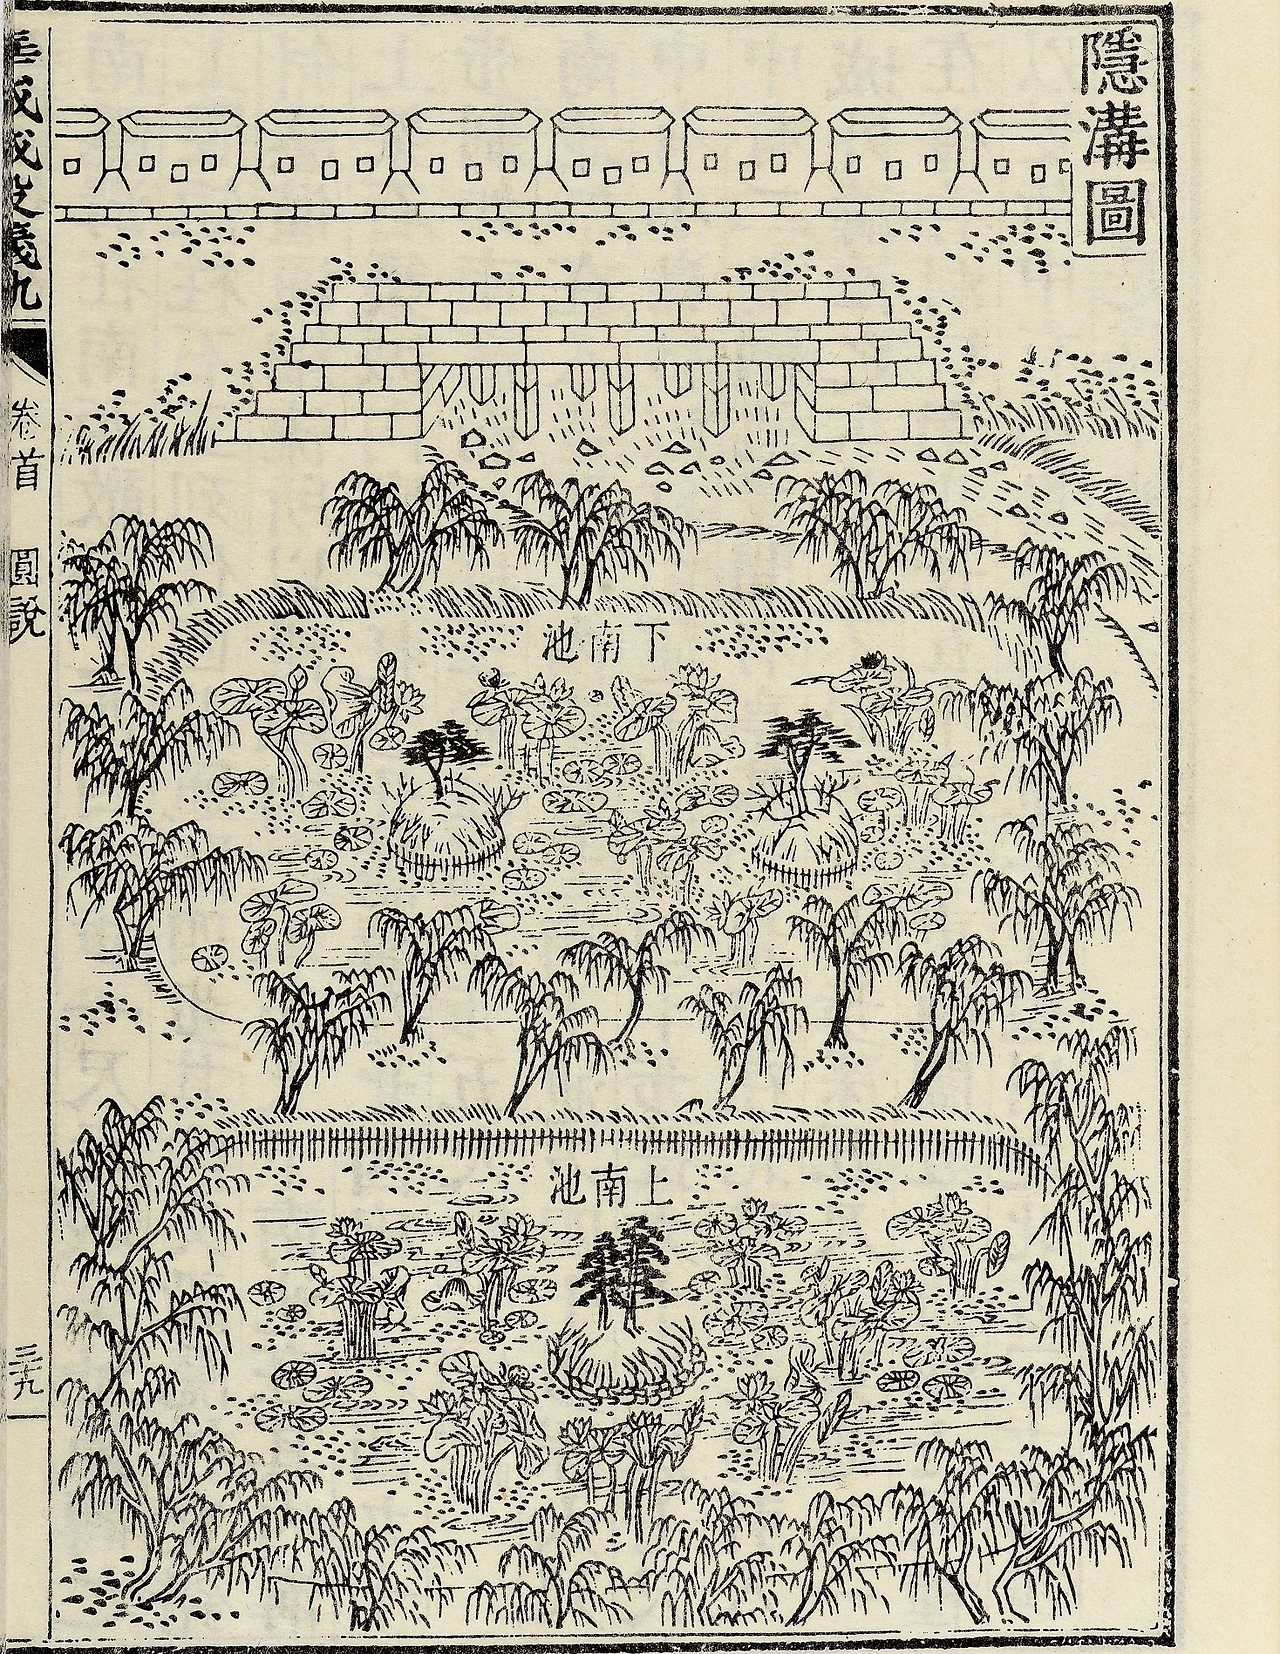 隱溝圖
下南池
上南池
華城城役儀軌
卷首
圖說
三十九